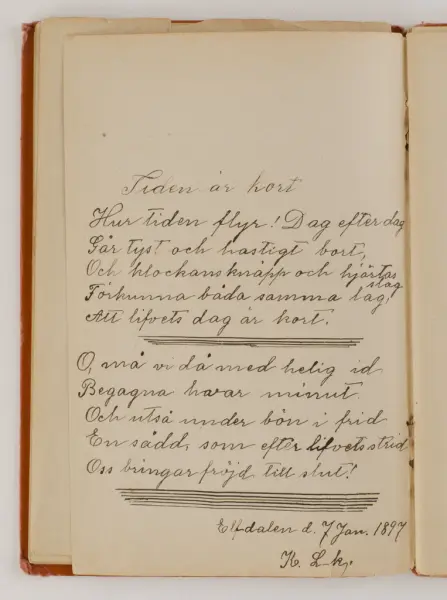 Tiden är kort
Hur tiden flyr! Dag efter dag
Går tyst och hastigt bort,
Och klockans knäpp och hjärtas slag
Förkunna båda samma lag,
Att lifvets dag är kort.
O, må vi då med helig id
Begagna hvar minut
Och utså under bön i frid
En sådd, som efter lifvets strid
Oss bringar fröjd till slut!
Elfdalen d. 7 Jan. 1897
K. L-k.